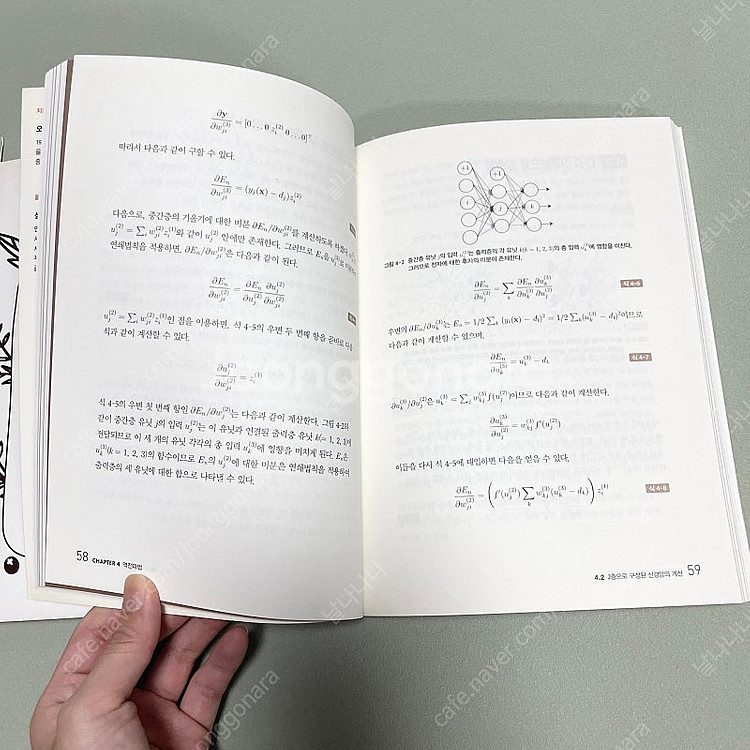 ∂y/∂w_ji^(3) = [0 … 0 z_i^(2) 0 … 0]^T
따라서 다음과 같이 구할 수 있다.
∂E_n/∂w_ji^(3) = (y_j(x) − d_j)z_i^(2)
다음으로, 중간층의 기울기에 대한 미분 ∂E_n/∂w_ji^(2)를 계산하도록 하겠다.
u_j^(2) = ∑_i w_ji^(2) z_i^(1)와 같이 u_j^(2) 안에만 존재한다. 그러므로 E_n을
연쇄법칙을 적용하면, ∂E_n/∂w_ji^(2)은 다음과 같이 된다.
∂E_n/∂w_ji^(2) = ∂E_n/∂u_j^(2) ∂u_j^(2)/∂w_ji^(2)
u_j^(2) = ∑_i w_ji^(2) z_i^(1)인 점을 이용하면, 식 4-5의 우변 두 번째 항을 곧바로 다음
식과 같이 계산할 수 있다.
∂u_j^(2)/∂w_ji^(2) = z_i^(1)
식 4-5의 우변 첫 번째 항인 ∂E_n/∂u_j^(2)는 다음과 같이 계산한다. 그림 4-2와
같이 중간층 유닛 j의 입력 u_j^(2)는 이 유닛과 연결된 출력층 유닛 k(= 1, 2, 3)에
전달되므로 이 세 개의 유닛 각각의 총 입력 u_k^(3)에 영향을 미치게 된다. E_n은
u_k^(3)(k = 1, 2, 3)의 함수이므로 E_n의 u_j^(2)에 대한 미분은 연쇄법칙을 적용하여
출력층의 세 유닛에 대한 합으로 나타낼 수 있다.
58 CHAPTER 4 역전파법
+1
+1
i
j
k
그림 4-2 중간층 유닛 j의 입력 u_j^(2)는 출력층의 각 유닛 k(k = 1, 2, 3)의 총 입력 u_k^(3)에 영향을 미친다.
그러므로 전자에 대한 후자의 미분이 존재한다.
∂E_n/∂u_j^(2) = ∑_k ∂E_n/∂u_k^(3) ∂u_k^(3)/∂u_j^(2) 식 4-6
우변의 ∂E_n/∂u_k^(3)는 E_n = 1/2 ∑_k (y_k(x) − d_k)² = 1/2 ∑_k(u_k^(3) − d_k)²이므로
다음과 같이 계산할 수 있으며,
∂E_n/∂u_k^(3) = u_k^(3) − d_k 식 4-7
∂u_k^(3)/∂u_j^(2)은 u_k^(3) = ∑_j w_kj^(3) f(u_j^(2))이므로 다음과 같이 계산한다.
∂u_k^(3)/∂u_j^(2) = w_kj^(3) f′(u_j^(2))
이들을 다시 식 4-5에 대입하면 다음을 얻을 수 있다.
∂E_n/∂w_ji^(2) = (f′(u_j^(2)) ∑_k w_kj^(3)(u_k^(3) − d_k)) z_i^(1) 식 4-8
4.2 2층으로 구성된 신경망의 계산 59
joonggonara
cafe.naver.com/joonggonara
날나나니